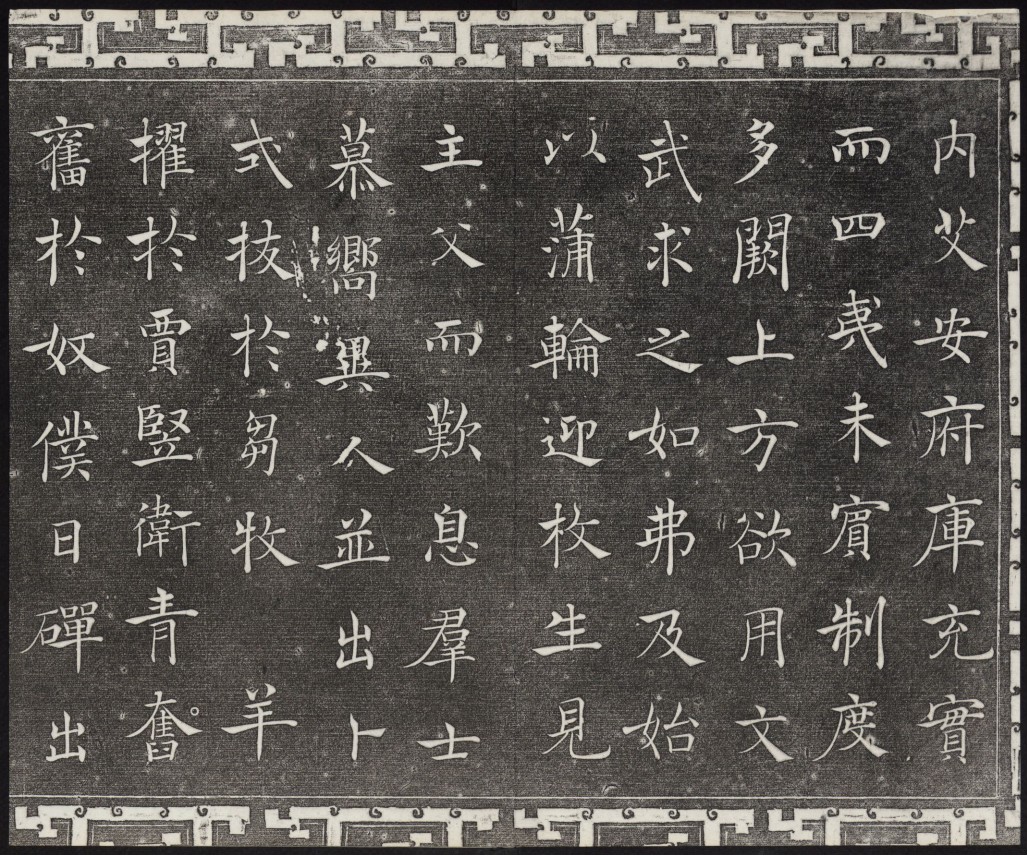 内艾安府庫充實
而四夷未賓制度
多闕上方欲用文
武求之如弗及始
以蒲輪迎枚生見
主父而歎息羣士
慕嚮異人並出卜
式技於芻牧羊
擢於賈豎衛青奮
奮於奴僕日磾出